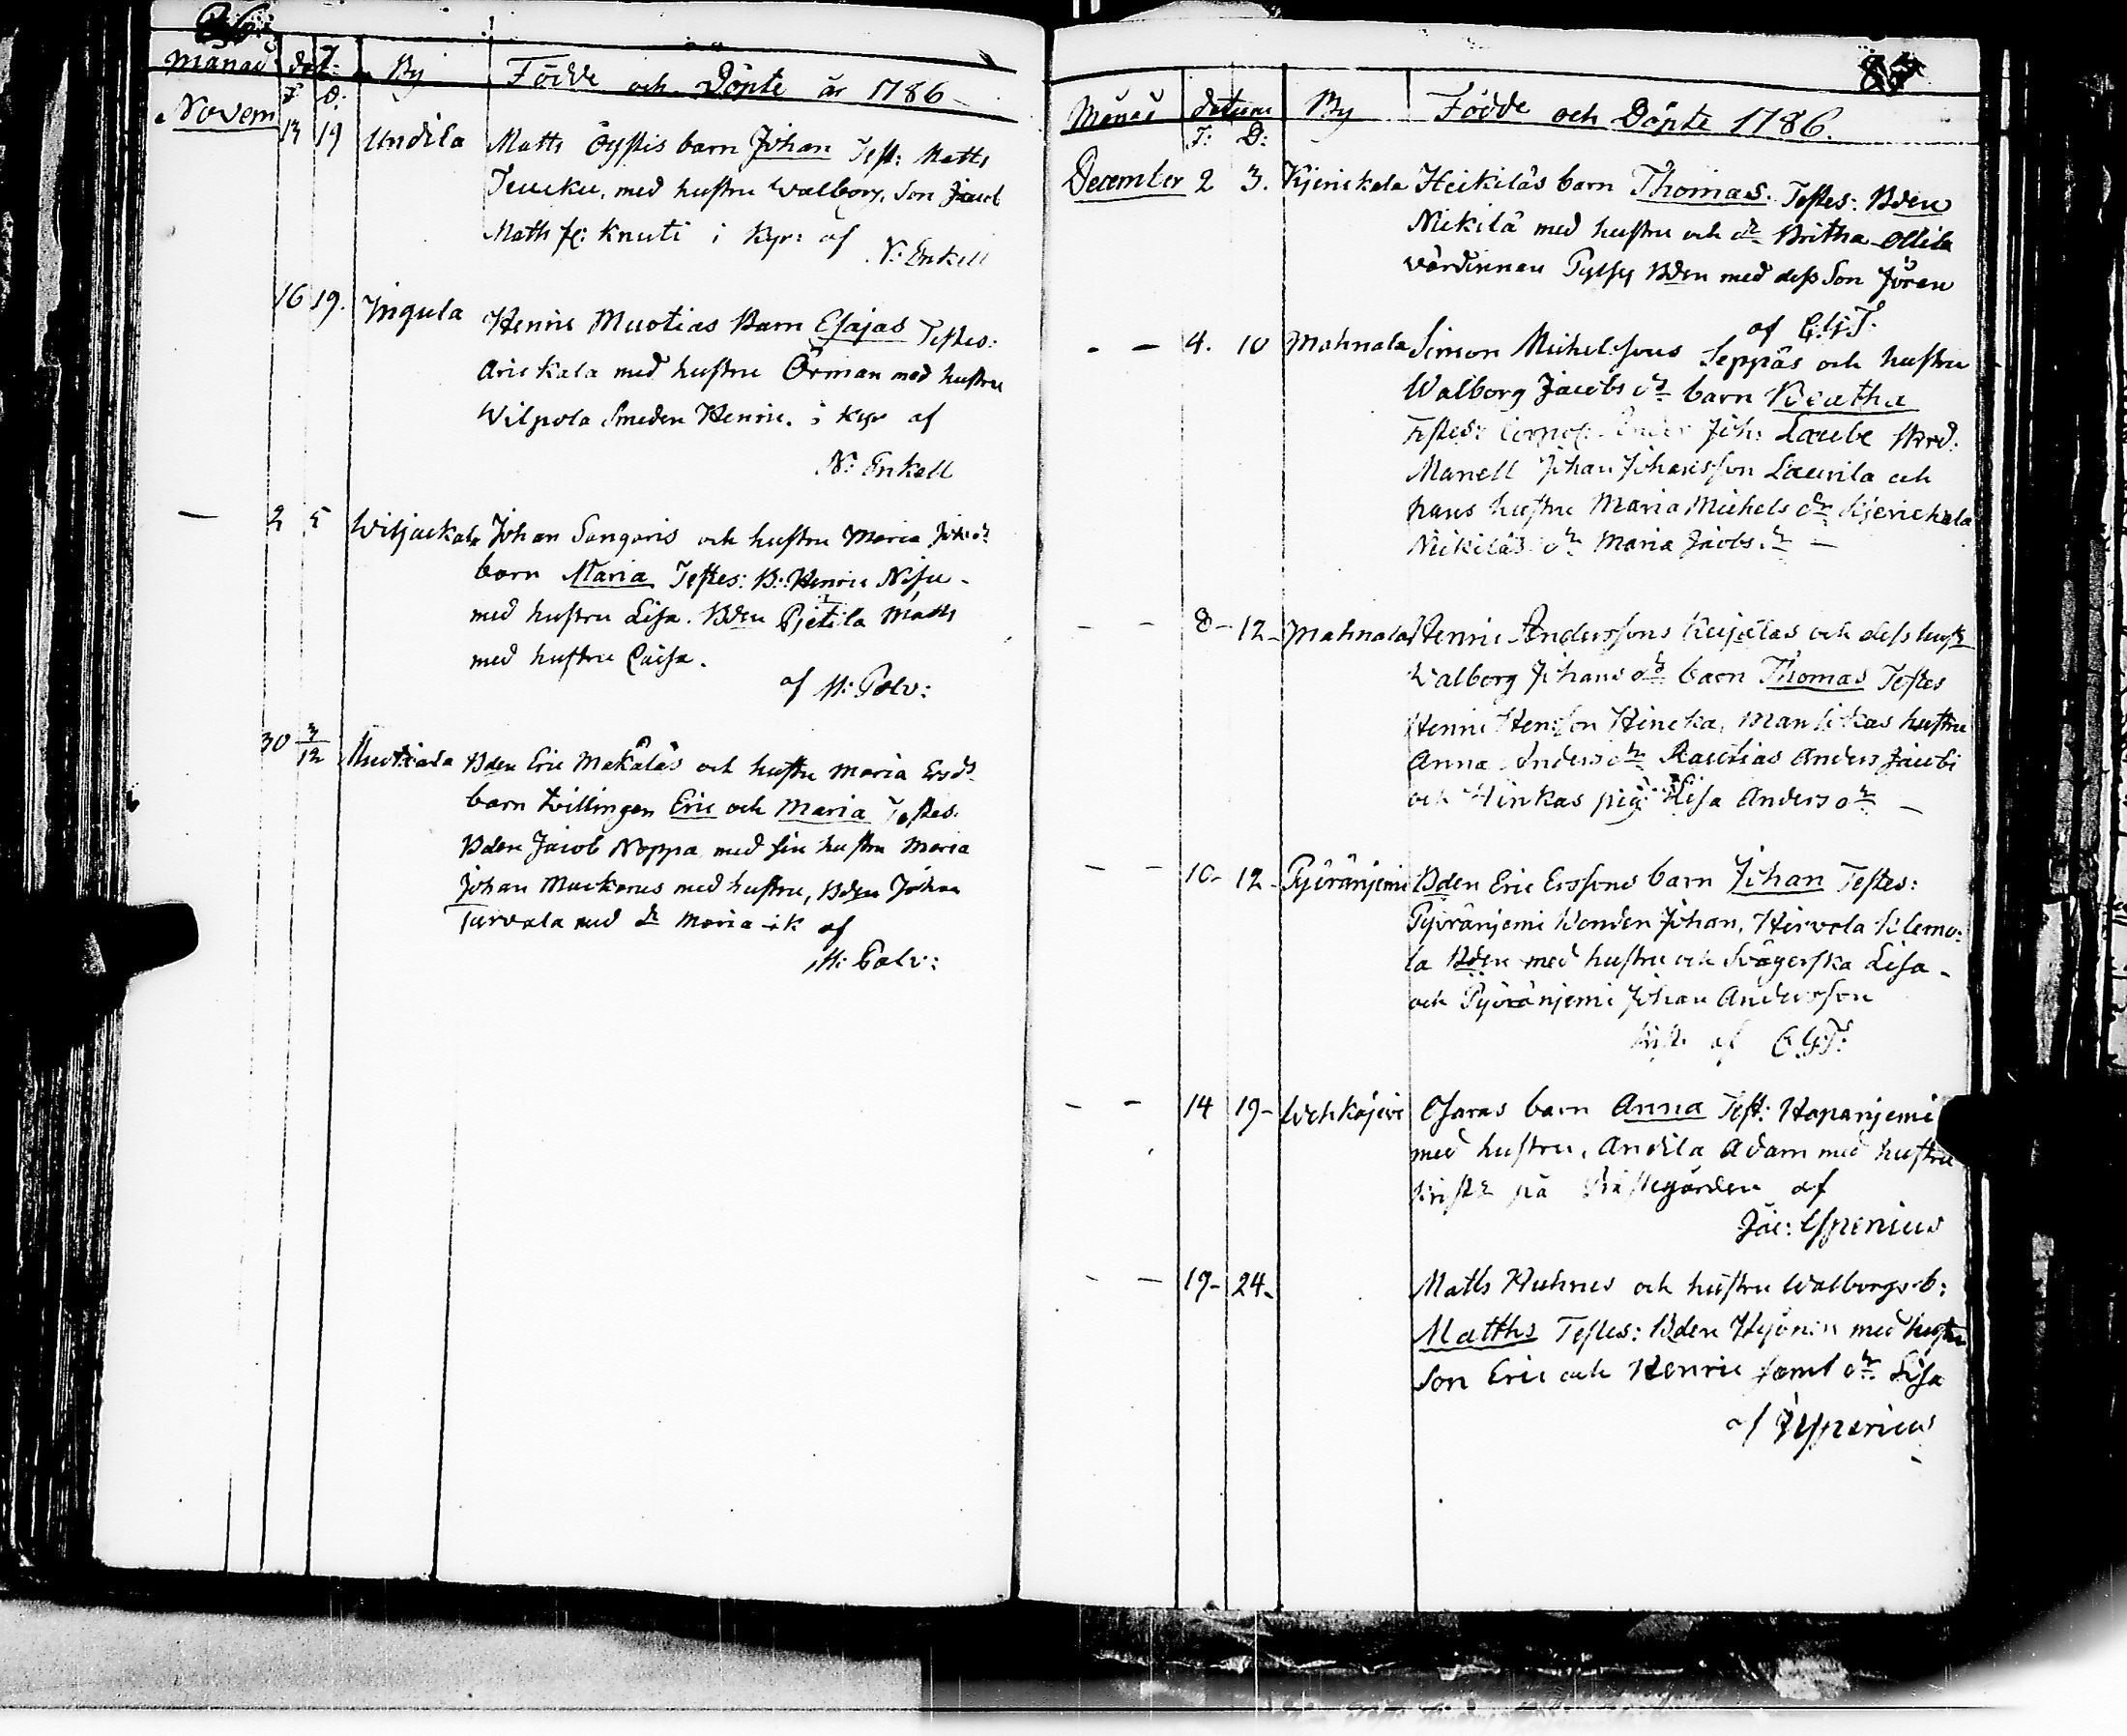 Månad dat: By Födde och Döpte år 1786
F D:
Novem 13 19 Undila Matts Öystis barn Johan Test: Matts
Teucku, med hustru Walborg. Son Jacob
Math fr: Knuti i Kyr: af
N: Enkell
16 19. Yngula Henric Muotias Barn Esajas Testes:
Arickala med hustru Örman med hustru
Wilpola Smeden Henric. i Kyr af
N: Enkell
— 2 5 Wiljackala Johan Sangaris och hustru Maria
barn Maria Testes: B: Henric Nisu -
med hustru Lisa. Bden Pietila Matts
med hustru Caisa.
af M: Polv:
30 3/12 Muotiala Bden Eric Mäkäläs och hustru Maria Ersdr
barn tvillingen Eric och Maria Testes.
Bden Jacob Noppa med sin hustru Maria
Johan Muckarus med hustru, Bden Johan
Turvala med dr Maria i K af
M: Polv:
87
Månad datum By Födde och Döpte 1786.
F: D:
December 2 3. Kjerickala Heikiläs barn Thomas. Testes: Bden
Nikilä med hustru och dr Britha Ollila
värdinnan Pylsy Bden med dess Son Jören
af C:G:T:
- — 4. 10 Mahnala Simon Michelsons Seppäs och hustru
Walborg Jacobs dr barn Beatha
Testes: Joh: Laube
Manell Johan Johansson Laurila och
hans hustru Maria Michels dr Kjerickala
Nickiläs dr Maria Jacobs dr —
- - 8 - 12 - Mahnala Henric Anderssons Kujalas och dess hustr
Walborg Johans dr barn Thomas Testes
Henric Henrson Hincka, Mansikas hustru
Anna Anders dr Rautias Anders Jacobi
och Hinkas pig: Lisa Anders dr —
- - 10 - 12 - Pyöränjemi Bden Eric Erssons barn Johan Testes:
Pyöränjemi Bonden Johan, Hirvola Klemo:
la Bden med hustru och Svägerska Lisa -
och Pyöränjemi Johan Andersson
af C.G.T:
- - 14 19 - Wehkajerv Osaras barn Anna Test: Hapanjemi
med hustru, Andila Adam med hustru
Kristt på Prästegården af
Jac: Esperius
- — 19 - 24 - Matts Huhnus och hustru Walborgs b:
Matths Testes: Bden Hyönin med hustru
Son Eric och Henric samt dr Lisa
af